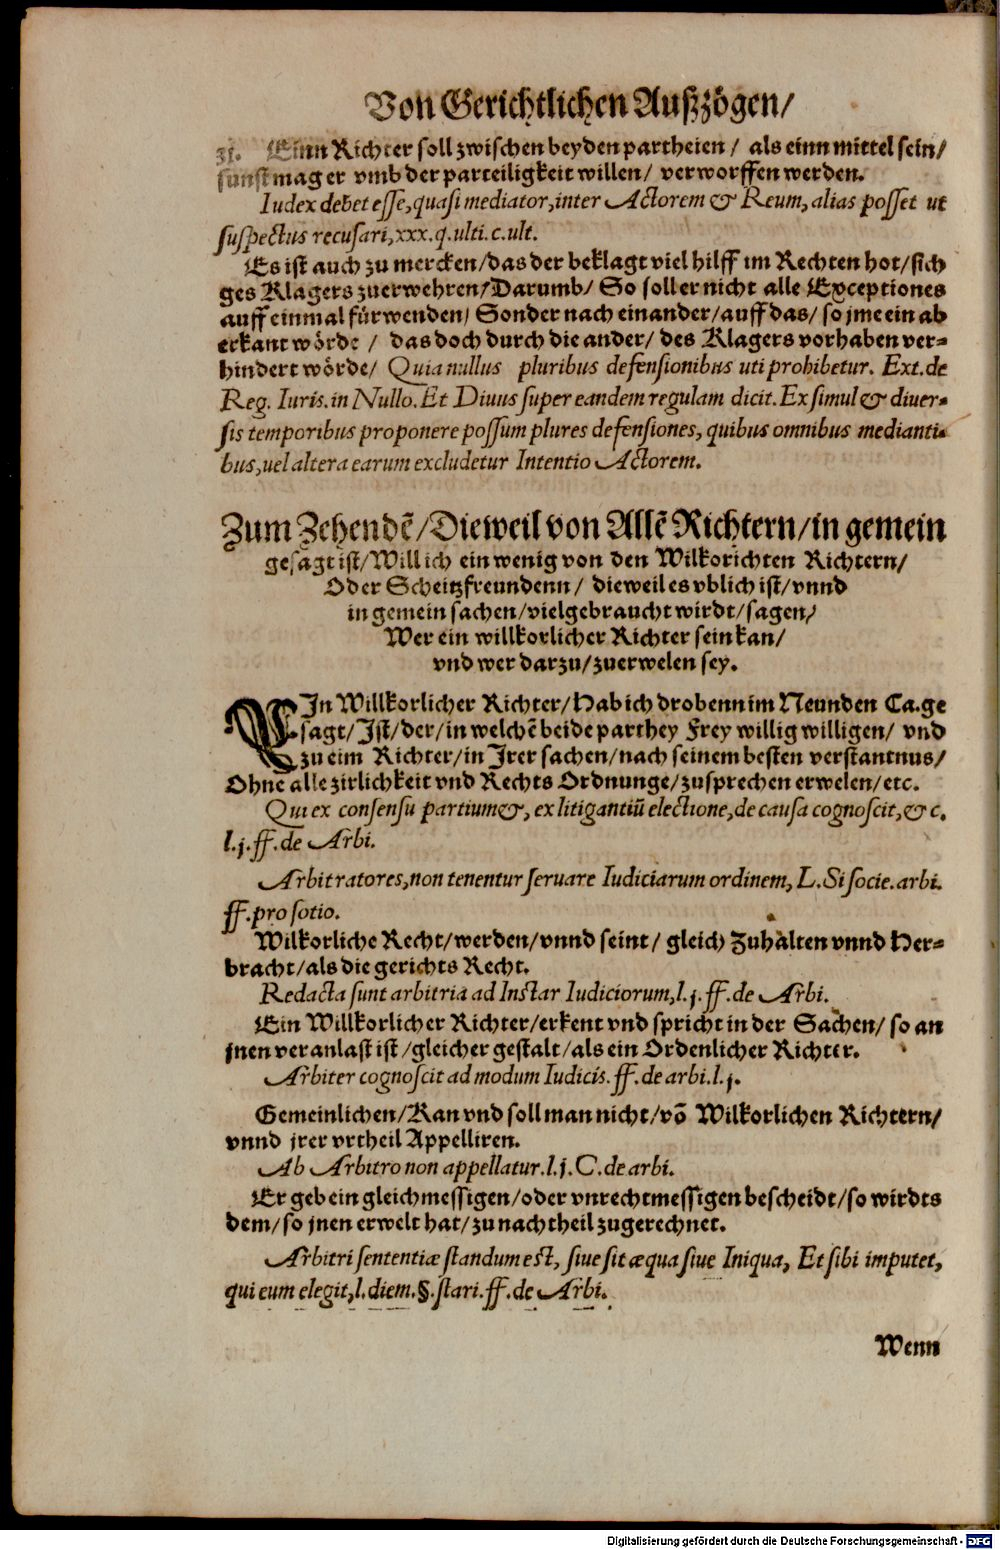 Von Gerichtlichen Außzögen/
31. Einn Richter soll zwischen beyden partheien / als einn mittel sein/
sunst mag er vmb der parteiligkeit willen/ verworffen werden.
Iudex debet esse, quasi mediator, inter Actorem & Reum, alias posset ut
suspectus recusari, xxx. q. ulti. c. ult.
Es ist auch zu mercken/das der beklagt viel hilff im Rechten hot/sich
ges Klagers zuerwehren/Darumb/ So soll er nicht alle Exceptiones
auff einmal fürwenden/ Sonder nach einander/auff das/ so jme ein ab
erkant wörde / das doch durch die ander/ des Klagers vorhaben ver=
hindert wörde/ Quia nullus pluribus defensionibus uti prohibetur. Ext. de
Reg. Iuris. in Nullo. Et Diuus super eandem regulam dicit. Ex simul & diuer-
sis temporibus proponere possum plures defensiones, quibus omnibus medianti-
bus, uel altera earum excludetur Intentio Actorem.
Zum Zehendẽ/Dieweil von Allẽ Richtern/in gemein
gesagt ist/Will ich ein wenig von den Wilkorichten Richtern/
Oder Scheitzfreundenn/ dieweil es vblich ist/vnnd
in gemein sachen/vielgebraucht wirdt/sagen/
Wer ein willkorlicher Richter sein kan/
vnd wer darzu/zuerwelen sey.
EIn Willkorlicher Richter/Hab ich drobenn im Neunden Ca.ge
sagt/Ist/der/in welchẽ beide parthey Frey willig willigen/ vnd
zu eim Richter/in Irer sachen/nach seinem besten verstantnus/
Ohne alle zirlichkeit vnd Rechts Ordnunge/zusprechen erwelen/etc.
Qui ex consensu partium&, ex litigantiũ electione, de causa cognoscit, & c.
l. j. ff. de Arbi.
Arbitratores, non tenentur seruare Iudiciarum ordinem, L. Si socie. arbi.
ff. pro sotio.
Wilkorliche Recht/werden/vnnd seint/ gleich Zuhalten vnnd Her=
bracht/als die gerichts Recht.
Redacta sunt arbitria ad Instar Iudiciorum, l. j. ff. de Arbi.
Ein Willkorlicher Richter/erkent vnd spricht in der Sachen/ so an
jnen veranlast ist /gleicher gestalt/als ein Ordenlicher Richter.
Arbiter cognoscit ad modum Iudicis. ff. de arbi. l. j.
Gemeinlichen/Kan vnd soll man nicht/võ Wilkorlichen Richtern/
vnnd jrer vrtheil Appelliren.
Ab Arbitro non appellatur. l. j. C. de arbi.
Er geb ein gleichmessigen/oder vnrechtmessigen bescheidt/so wirdts
dem/so jnen erwelt hat/zu nachtheil zugerechnet.
Arbitri sententiæ standum est, siue sit æqua siue Iniqua, Et sibi imputet,
qui eum elegit, l. diem. §. stari. ff. de Arbi.
Wenn
Digitalisierung gefördert durch die Deutsche Forschungsgemeinschaft - DFG